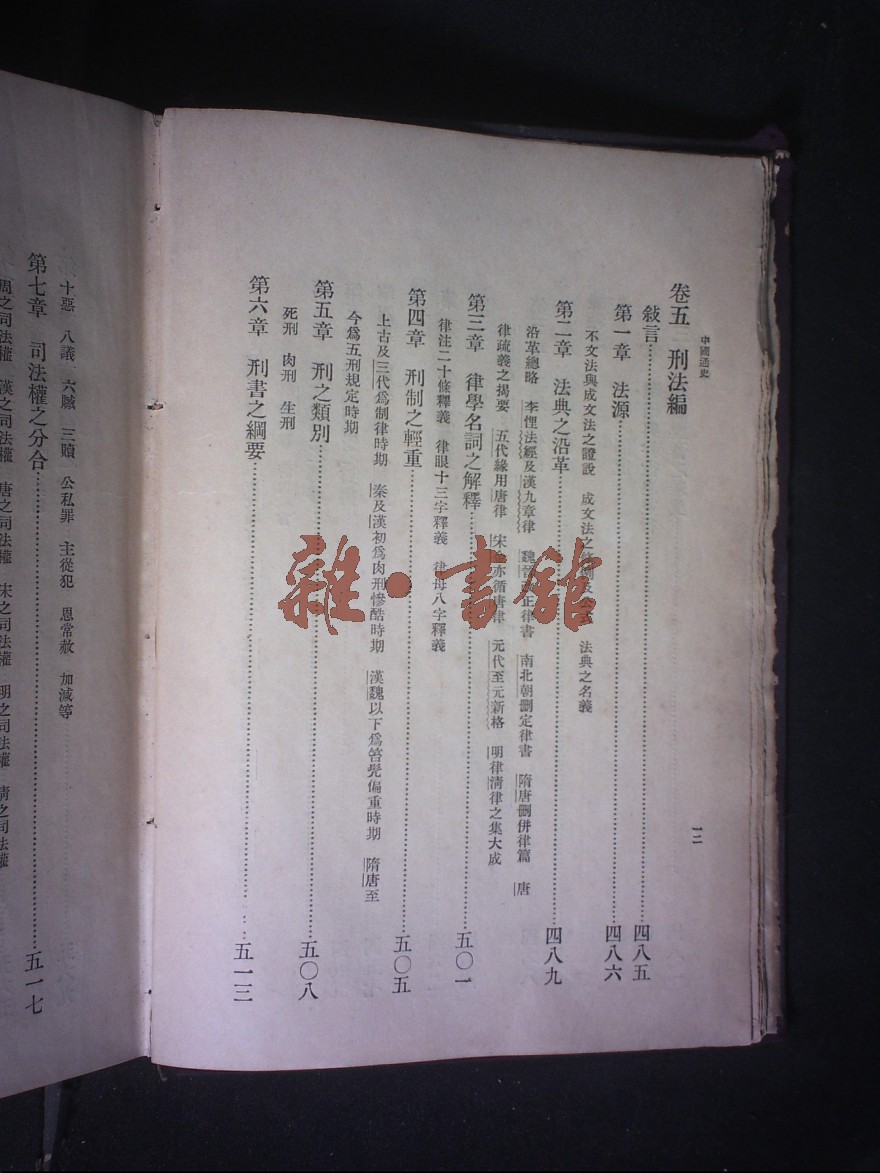 中國通史
一二
卷五　刑法編
敍言…………四八五
第一章　法源…………四八六
不文法與成文法之證說　成文法之　法典之名義
第二章　法典之沿革…………四八九
沿革總略　李悝法經及漢九章律　魏晉　正律書　南北朝刪定律書　隋唐刪併律篇　唐
律疏義之揭要　五代緣用唐律　宋　亦循唐律　元代至元新格　明律淸律之集大成
第三章　律學名詞之解釋…………五〇一
律注二十條釋義　律眼十三字釋義　律母八字釋義
第四章　刑制之輕重…………五〇五
上古及三代爲制律時期　秦及漢初爲肉刑慘酷時期　漢魏以下爲笞髠偏重時期　隋唐至
今爲五刑規定時期
第五章　刑之類別…………五〇八
死刑　肉刑　生刑
第六章　刑書之綱要…………五一三
十惡　八議　六贓　三贖　公私罪　主從犯　恩常赦　加減等
第七章　司法權之分合…………五一七
周之司法權　漢之司法權　唐之司法權　宋之司法權　明之司法權　淸之司法權
雜·書館